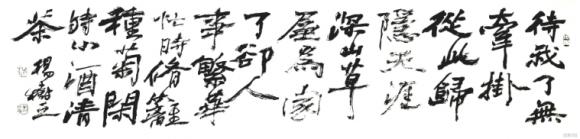 待我了無
牽掛
從此歸
隱天涯
深山草
屋為園
了卻人
事繁華
忙時脩籬
種菊閑
時小酒清
茶 楊樹